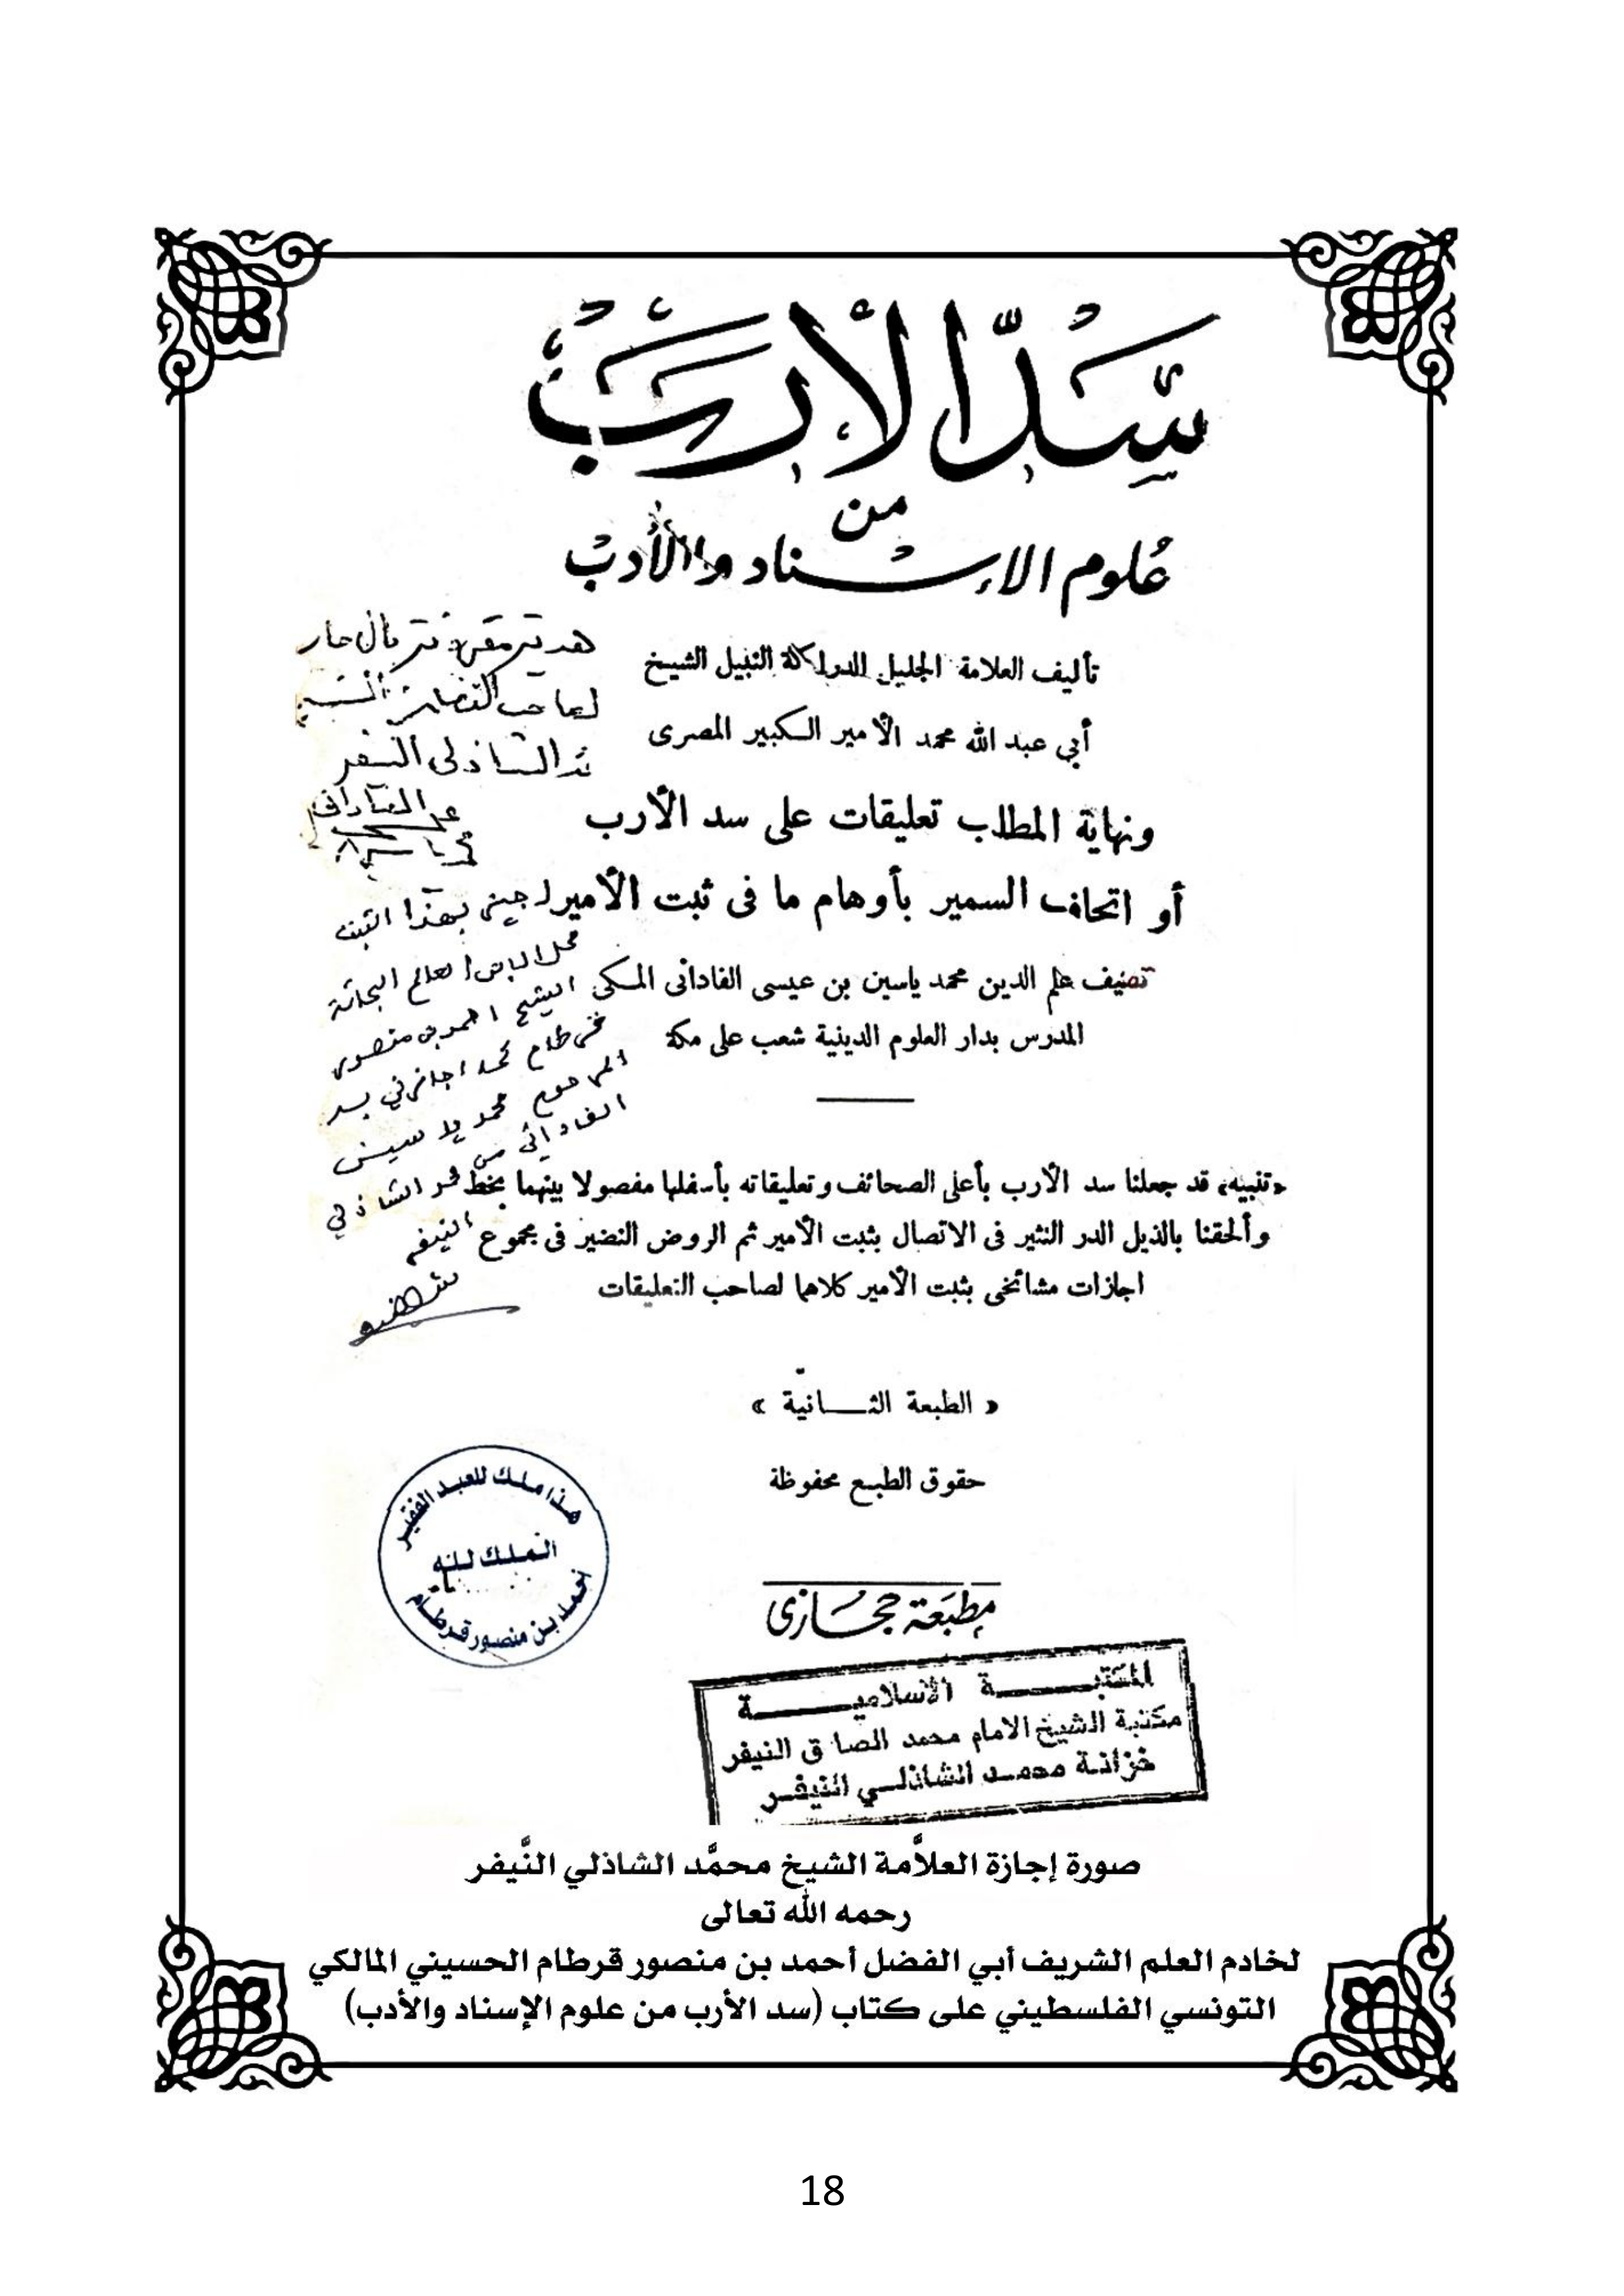 سَدّ الأرَبْ
من
عُلوم الإسْناد والأدبْ
تأليف العلامة الجليل الدراكة النبيل الشيخ
أبي عبد الله محمد الأمير الكبير المصرى
ونهاية المطلب تعليقات على سد الأرب
أو اتحاف السمير بأوهام ما فى ثبت الأمير
تصنيف علم الدين محمد ياسين بن عيسى الفادانى المكى
المدرس بدار العلوم الدينية شعب على مكة
لصاحب الفضيلة
الشاذلى النيفر
بهذا الثبت
العالم البحاثة
الشيخ احمد بن منصور
قرطام كما اجازني به
المرحوم محمد ياسين
الفاداني
محمد الشاذلي
النيفر
«تنبيه» قد جعلنا سد الأرب بأعلى الصحائف وتعليقاته بأسفلها مفصولا بينهما بخط
وألحقنا بالذيل الدر النثير فى الاتصال بثبت الأمير ثم الروض النضير فى مجموع
اجازات مشائخى بثبت الأمير كلاهما لصاحب التعليقات
« الطبعة الثـانية »
حقوق الطبع محفوظة
هذا ملك للعبد الفقير
الملك لله
أحمد بن منصور قرطام
مطبعة حجازى
المكتبة الاسلامية
مكتبة الشيخ الامام محمد الصادق النيفر
خزانة محمد الشاذلي النيفر
صورة إجازة العلاَّمة الشيخ محمَّد الشاذلي النَّيفر
رحمه الله تعالى
لخادم العلم الشريف أبي الفضل أحمد بن منصور قرطام الحسيني المالكي
التونسي الفلسطيني على كتاب (سد الأرب من علوم الإسناد والأدب)
18